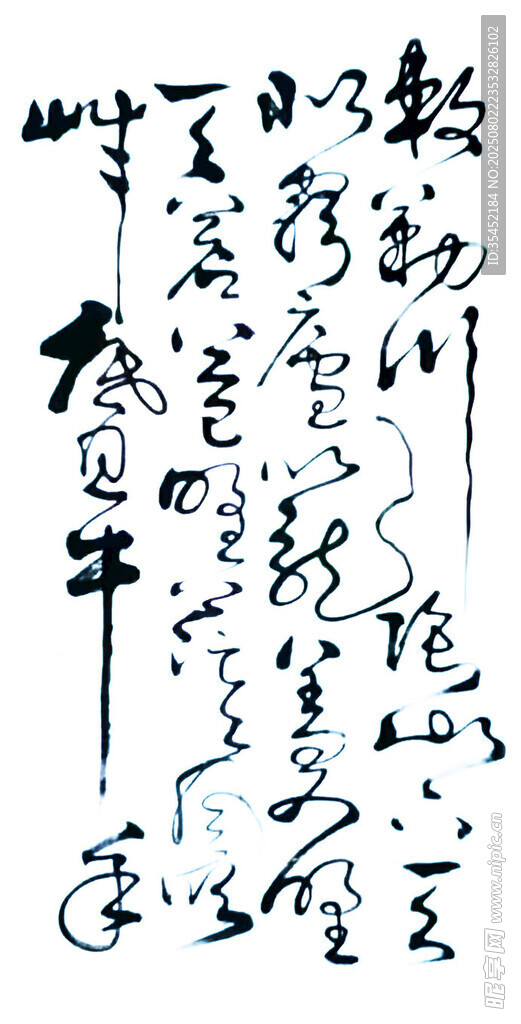 敕勒川陰山下天
似穹廬籠蓋四野
天蒼蒼野茫茫風吹
草低見牛羊
ID:35452184 NO:20250802223532826102
昵享网 www.nipic.cn